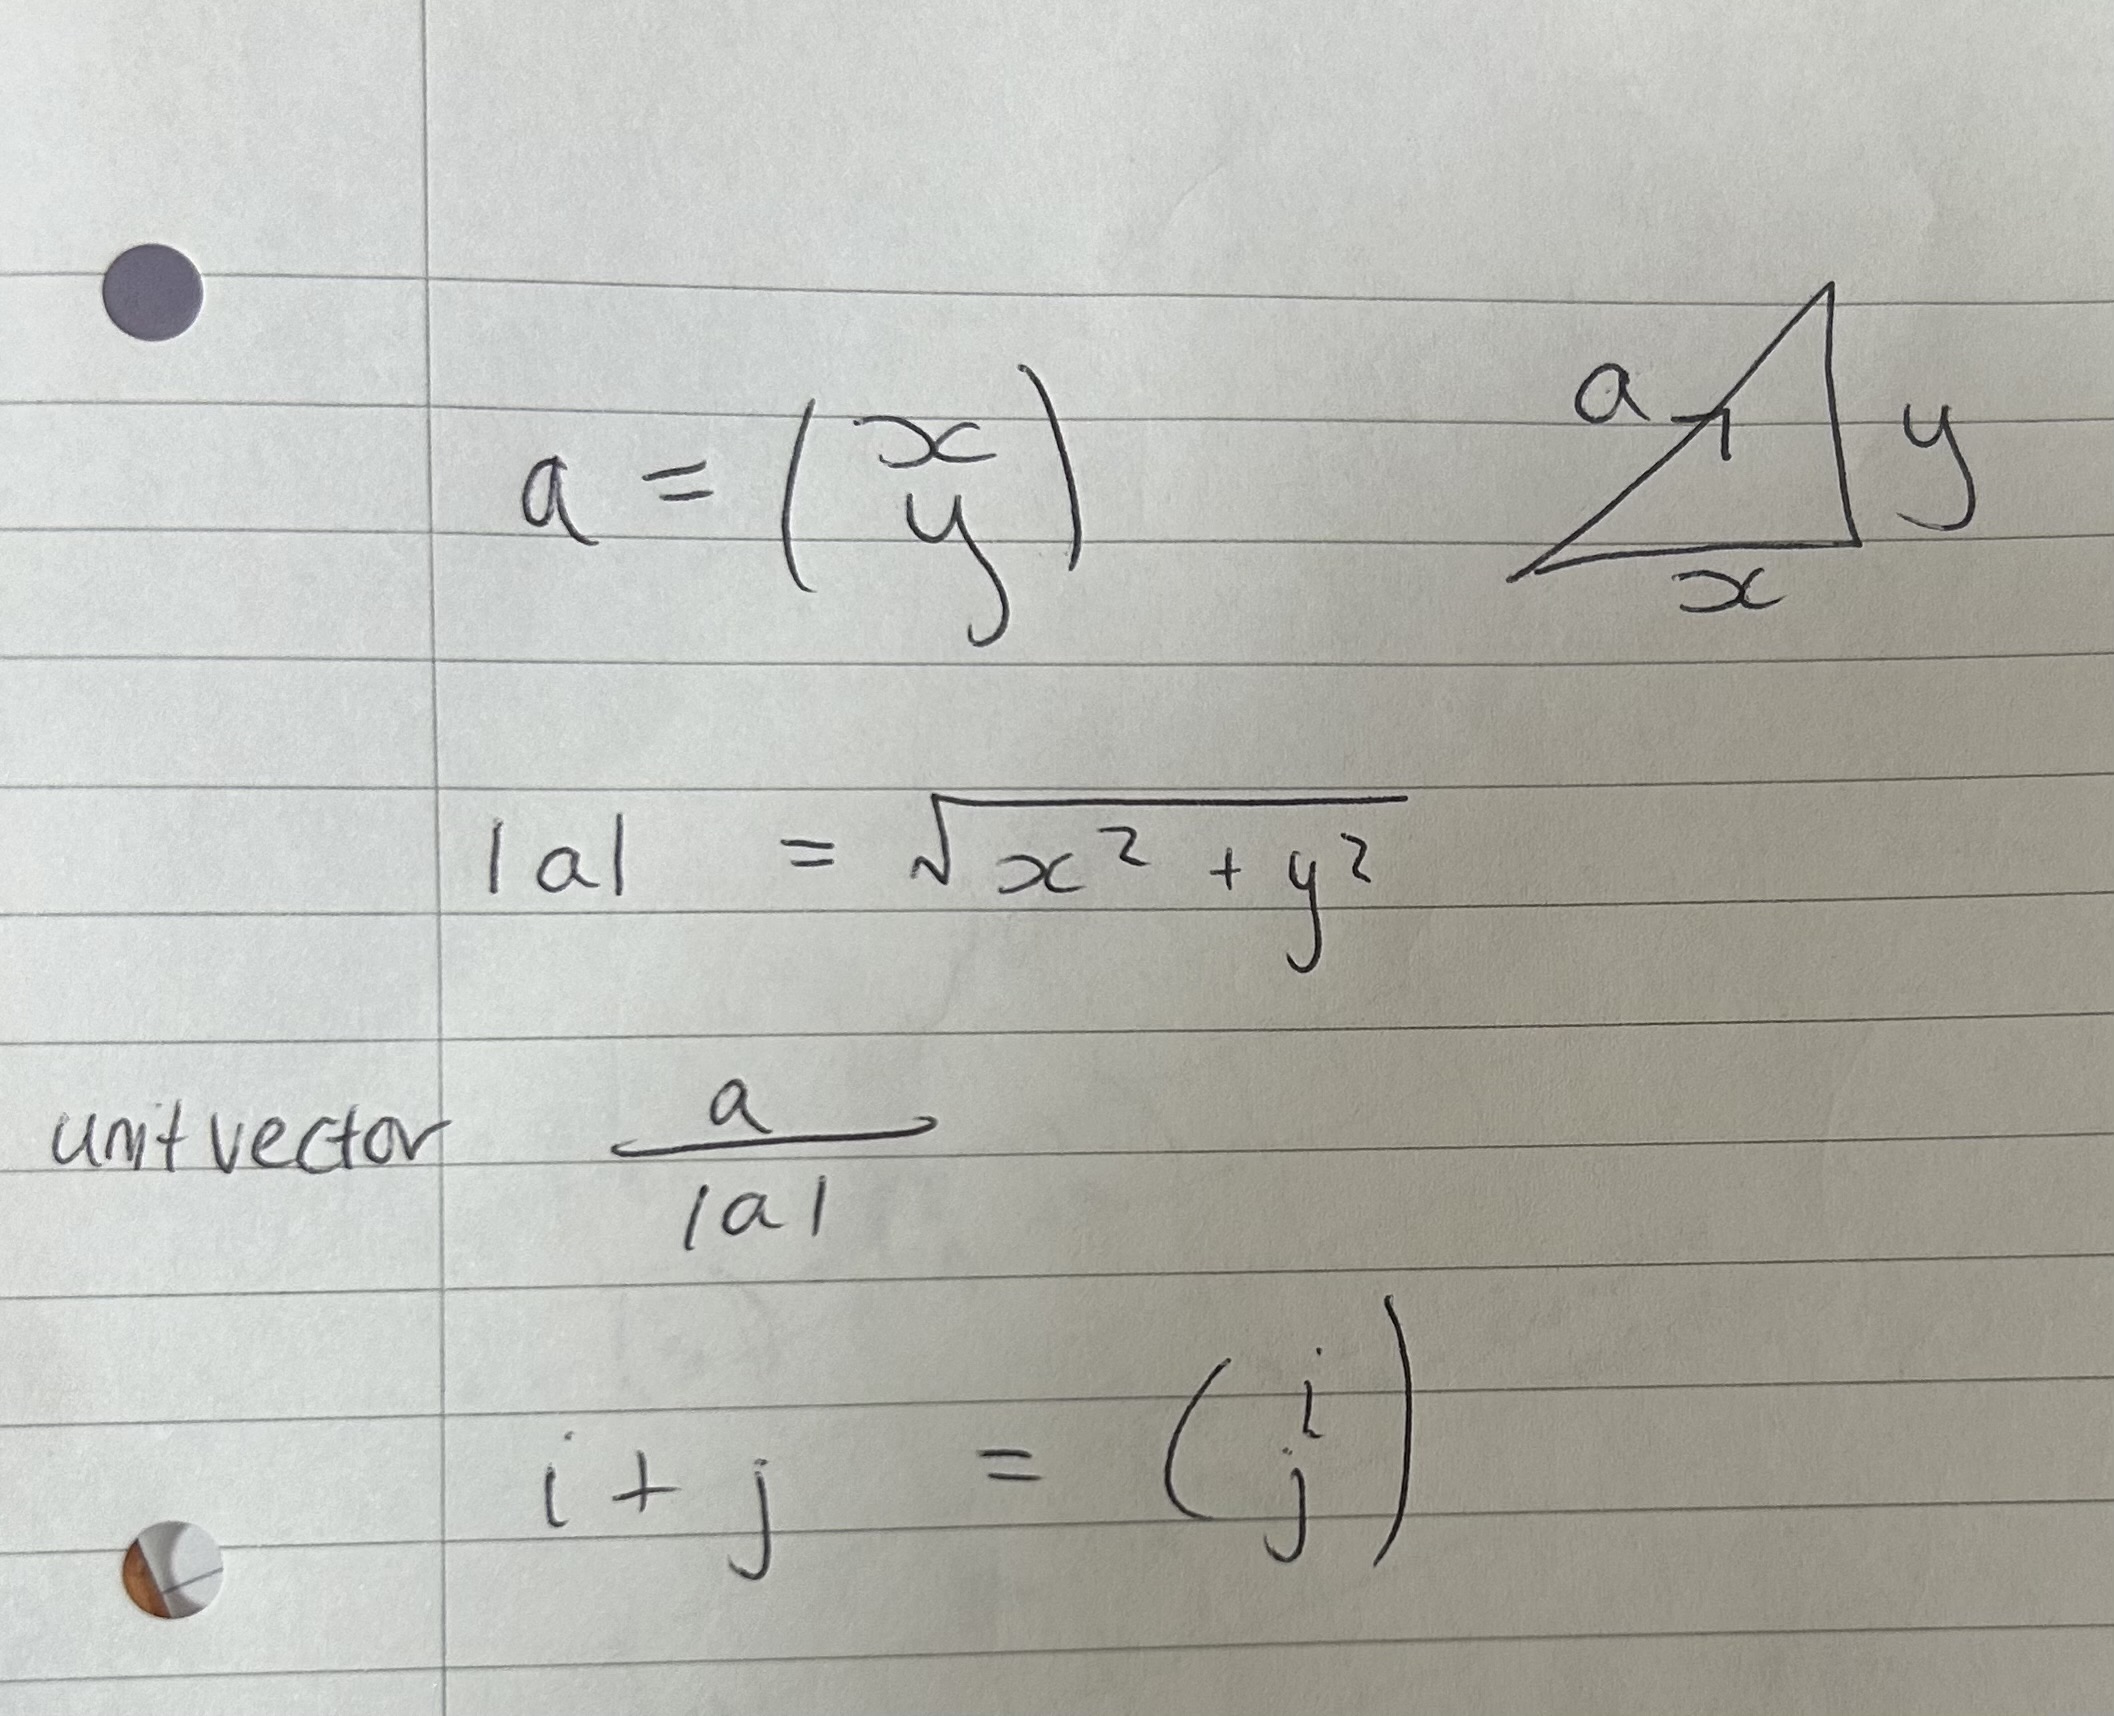 a = (x
y)
a
y
x
|a| = √x² + y²
unit vector a
|a|
i + j = (i
j)